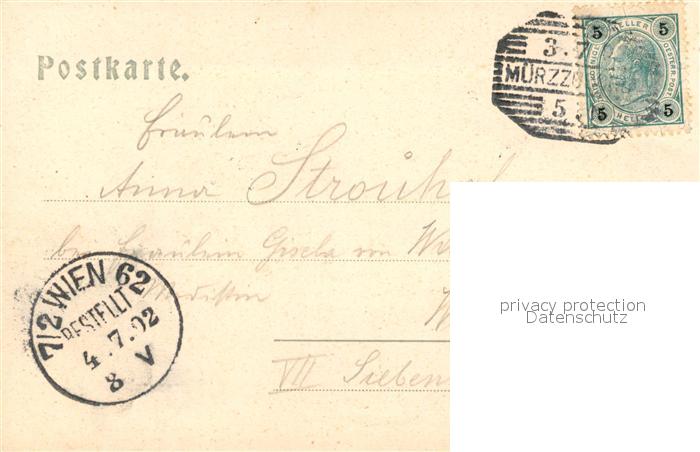 Postkarte.
3. 7
MÜRZZ
5
5 HELLER 5
KAIS. KÖNIGL. OESTERR. POST.
5 HELLER 5
Fräulein
Anna Strouh
bei Fräulein Gisela von
Modistin
W
VII Sieben
7/2 WIEN 62
BESTELLT
4.7.02
8 V
privacy protection
Datenschutz